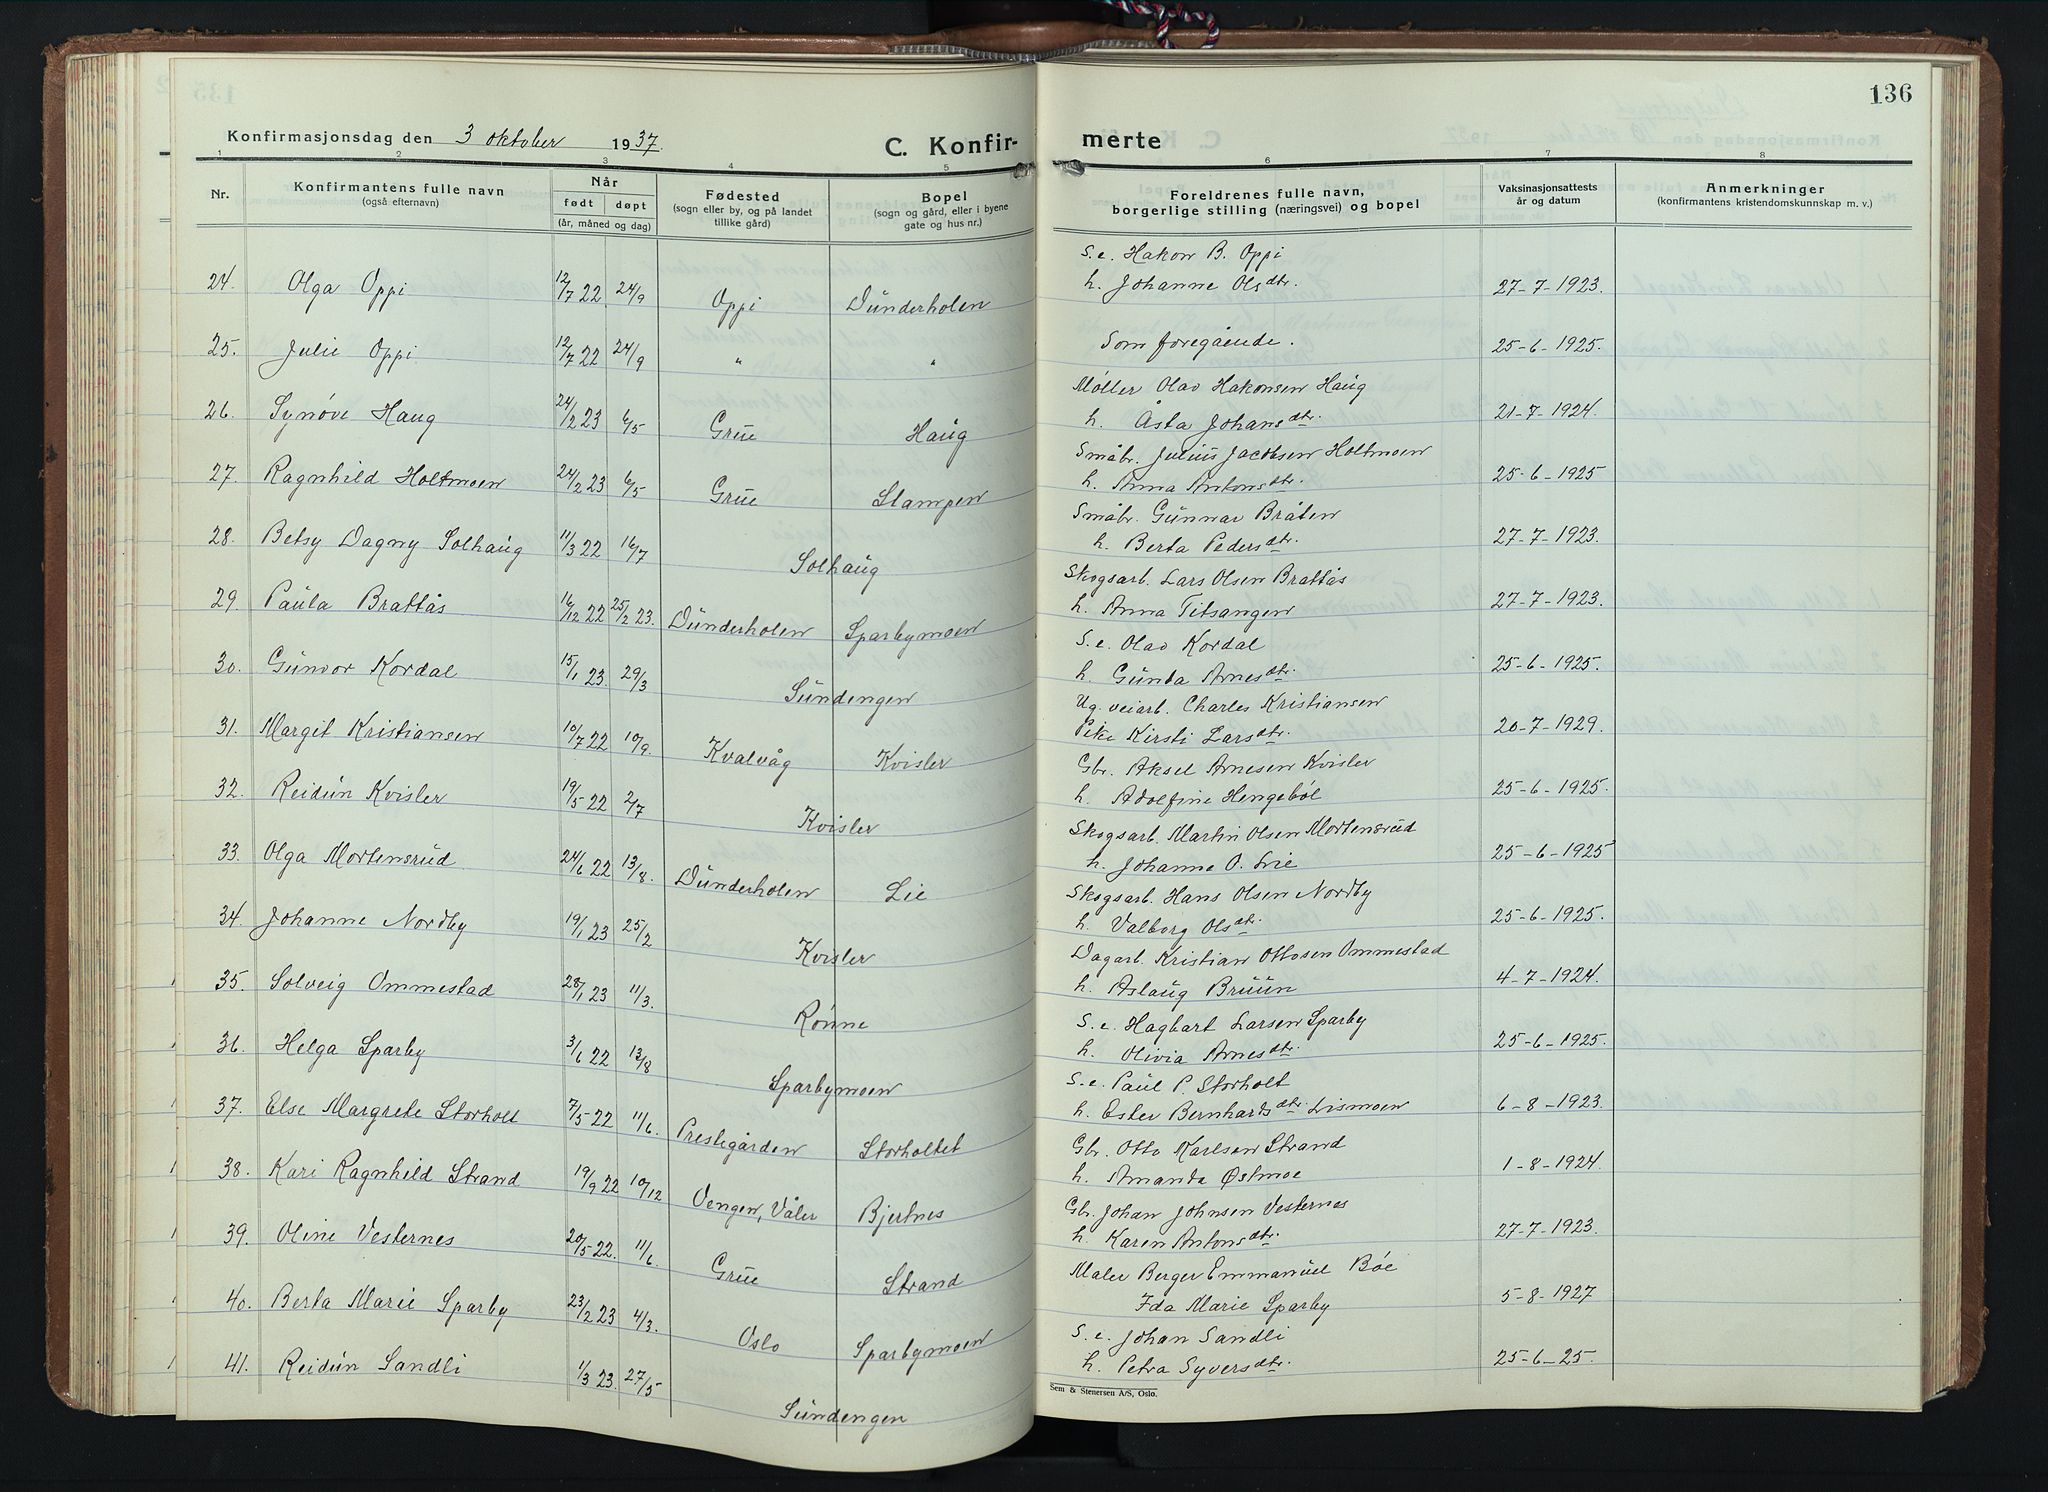 136
Konfirmasjonsdag den 3 oktober 1937.
C. Konfir-
merte
1 2 3 4 5 6 7 8
Nr.
Konfirmantens fulle navn
(også efternavn)
Når
født døpt
(år, måned og dag)
Fødested
(sogn eller by, og på landet
tillike gård)
Bopel
(sogn og gård, eller i byene
gate og hus nr.)
Foreldrenes fulle navn,
borgerlige stilling (næringsvei) og bopel
Vaksinasjonsattests
år og datum
Anmerkninger
(konfirmantens kristendomskunnskap m. v.)
S.e. Hakon B. Oppi
24. Olga Oppi 12/7 22 24/9 Oppi Dunderholen h. Johanne Olsdtr. 27-7-1923.
25. Julie Oppi 12/7 22 24/9 " " Som foregående. 25-6-1925.
Møller Olav Hakonsen Haug
26. Synøve Haug 24/2 23 6/5 Grue Haug h. Åsta Johansdtr. 21-7-1924.
Småbr. Julius Jacobsen Holtmoen
27. Ragnhild Holtmoen 24/2 23 6/5 Grue Stampen h. Anna Antonsdtr. 25-6-1925
Småbr. Gunnar Bråten
28. Betsy Dagny Solhaug 11/3 22 16/7 Solhaug h. Berta Pedersdtr. 27-7-1923.
Skogsarb. Lars Olsen Brattås
29. Paula Brattås 16/12 22 25/2 23. Dunderholen Sparbymoen h. Anna Titsangen 27-7-1923.
S.e. Olav Kordal
30. Gunvor Kordal 15/1 23. 29/3 Sundengen h. Gunda Arnesdtr. 25-6-1925.
Ug. veiarb. Charles Kristiansen
31. Margit Kristiansen 10/7 22 10/9. Kvalvåg Kvisler Pike Kirsti Larsdtr. 20-7-1929.
Gbr. Aksel Arnesen Kvisler
32. Reidun Kvisler 19/5 22 2/7 Kvisler h. Adolfine Hengebøl 25-6-1925.
Skogsarb. Martin Olsen Mortensrud
33. Olga Mortensrud 24/6 22 13/8. Dunderholen Lie h. Johanne O. Lie 25-6-1925
Skogsarb. Hans Olsen Nordby
34. Johanne Nordby 19/1 23 25/2 Kvisler h. Valborg Olsdtr. 25-6-1925.
Dagarb. Kristian Ottosen Ommestad
35. Solveig Ommestad 28/1 23 11/3. Rønne h. Aslaug Bruun 4-7-1924.
S.e. Hagbart Larsen Sparby
36. Helga Sparby 3/6 22 13/8 Sparbymoen h. Olivia Arnesdtr. 25-6-1925.
S.e. Paul P. Storholt
37. Else Margrete Storholt 7/5 22 11/6. Prestegården Storholtet h. Ester Bernhardsdtr. Lismoen 6-8-1923.
Gbr. Otto Karlsen Strand
38. Kari Ragnhild Strand 19/9 22 10/12 Vengen, Våler Bjertnes h. Amanda Østmoe 1-8-1924.
Gbr. Johan Johnsen Vesternes
39. Oline Vesternes 20/5 22. 11/6. Grue Strand h. Karen Antonsdtr. 27-7-1923.
Maler Berger Emmanuel Bøe
40. Berta Marie Sparby 23/2 23 4/3. Oslo Sparbymoen Ida Marie Sparby 5-8-1927
S.e. Johan Sandli
41. Reidun Sandli 1/3 23. 27/5 Sundengen h. Petra Syversdtr. 25-6-25.
Sem & Stenersen A/S, Oslo.